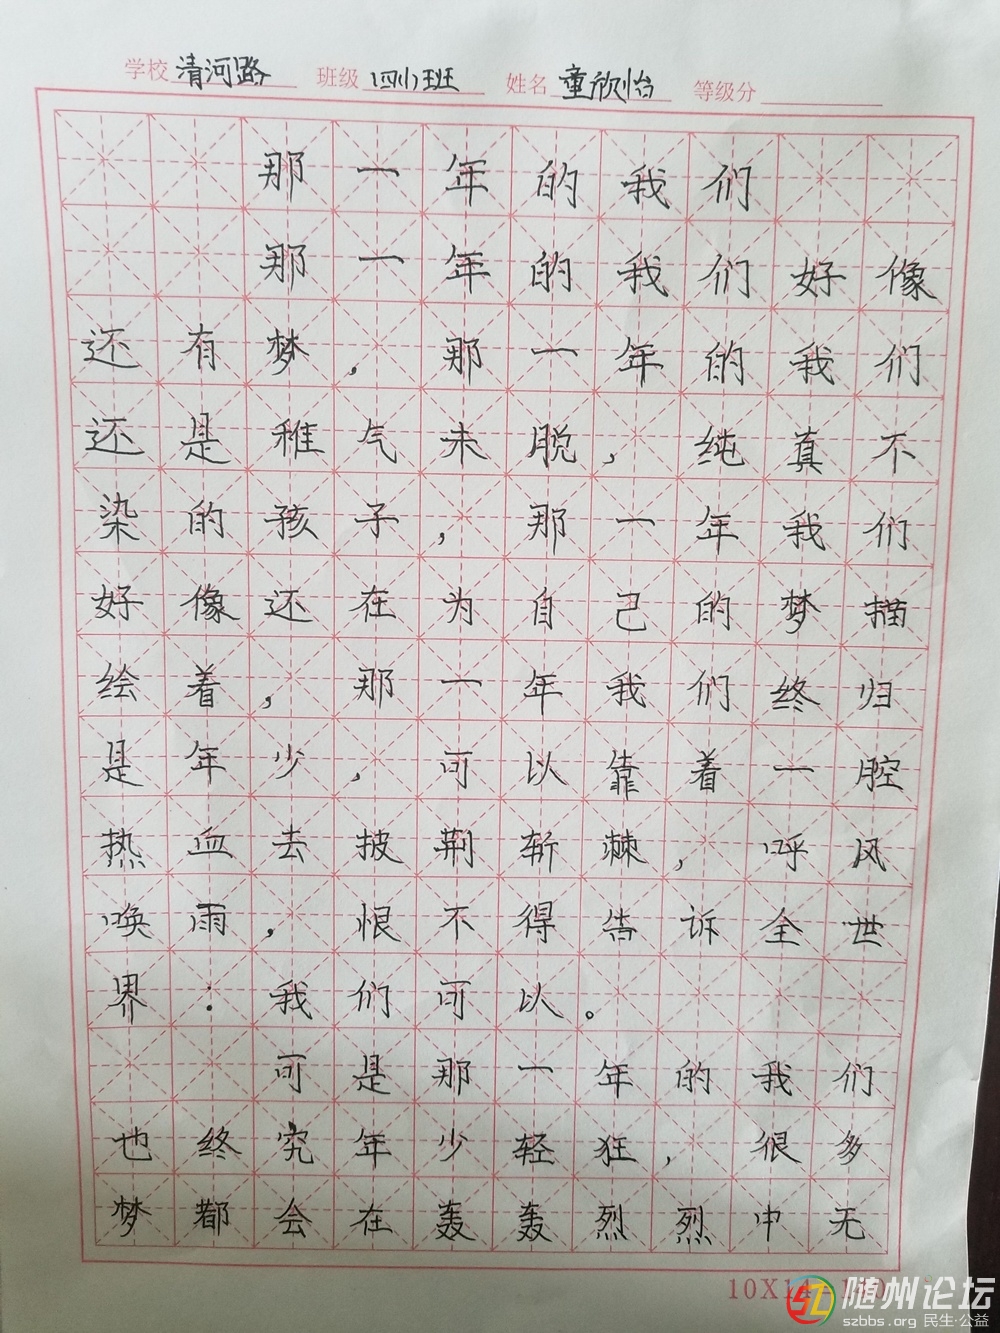 学校 清河路 班级 四(1)班 姓名 童欣怡 等级分
那一年的我们
那一年的我们好像
还有梦,那一年的我们
还是稚气未脱,纯真不
染的孩子,那一年我们
好像还在为自己的梦描
绘着,那一年我们终归
是年少,可以靠着一腔
热血去披荆斩棘,呼风
唤雨,恨不得告诉全世
界:我们可以。
可是那一年的我们
也终究年少轻狂,很多
梦都会在轰轰烈烈中无
10X14=140
随州论坛
szbbs.org 民生·公益